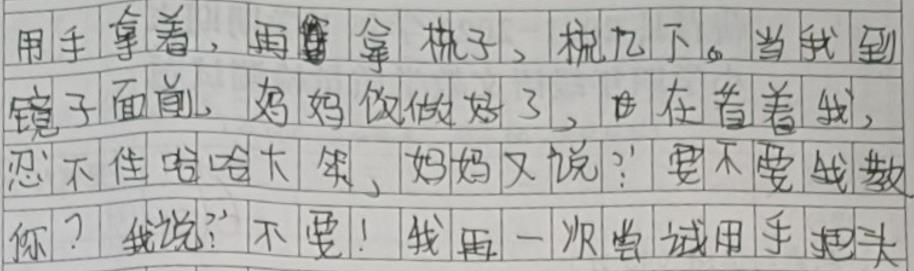 用手拿着，再拿梳子，梳几下。当我到
镜子面前，妈妈饭做好了，也在看着我，
忍不住哈哈大笑，妈妈又说：“要不要我教
你？我说：”不要！我再一次尝试用手把头